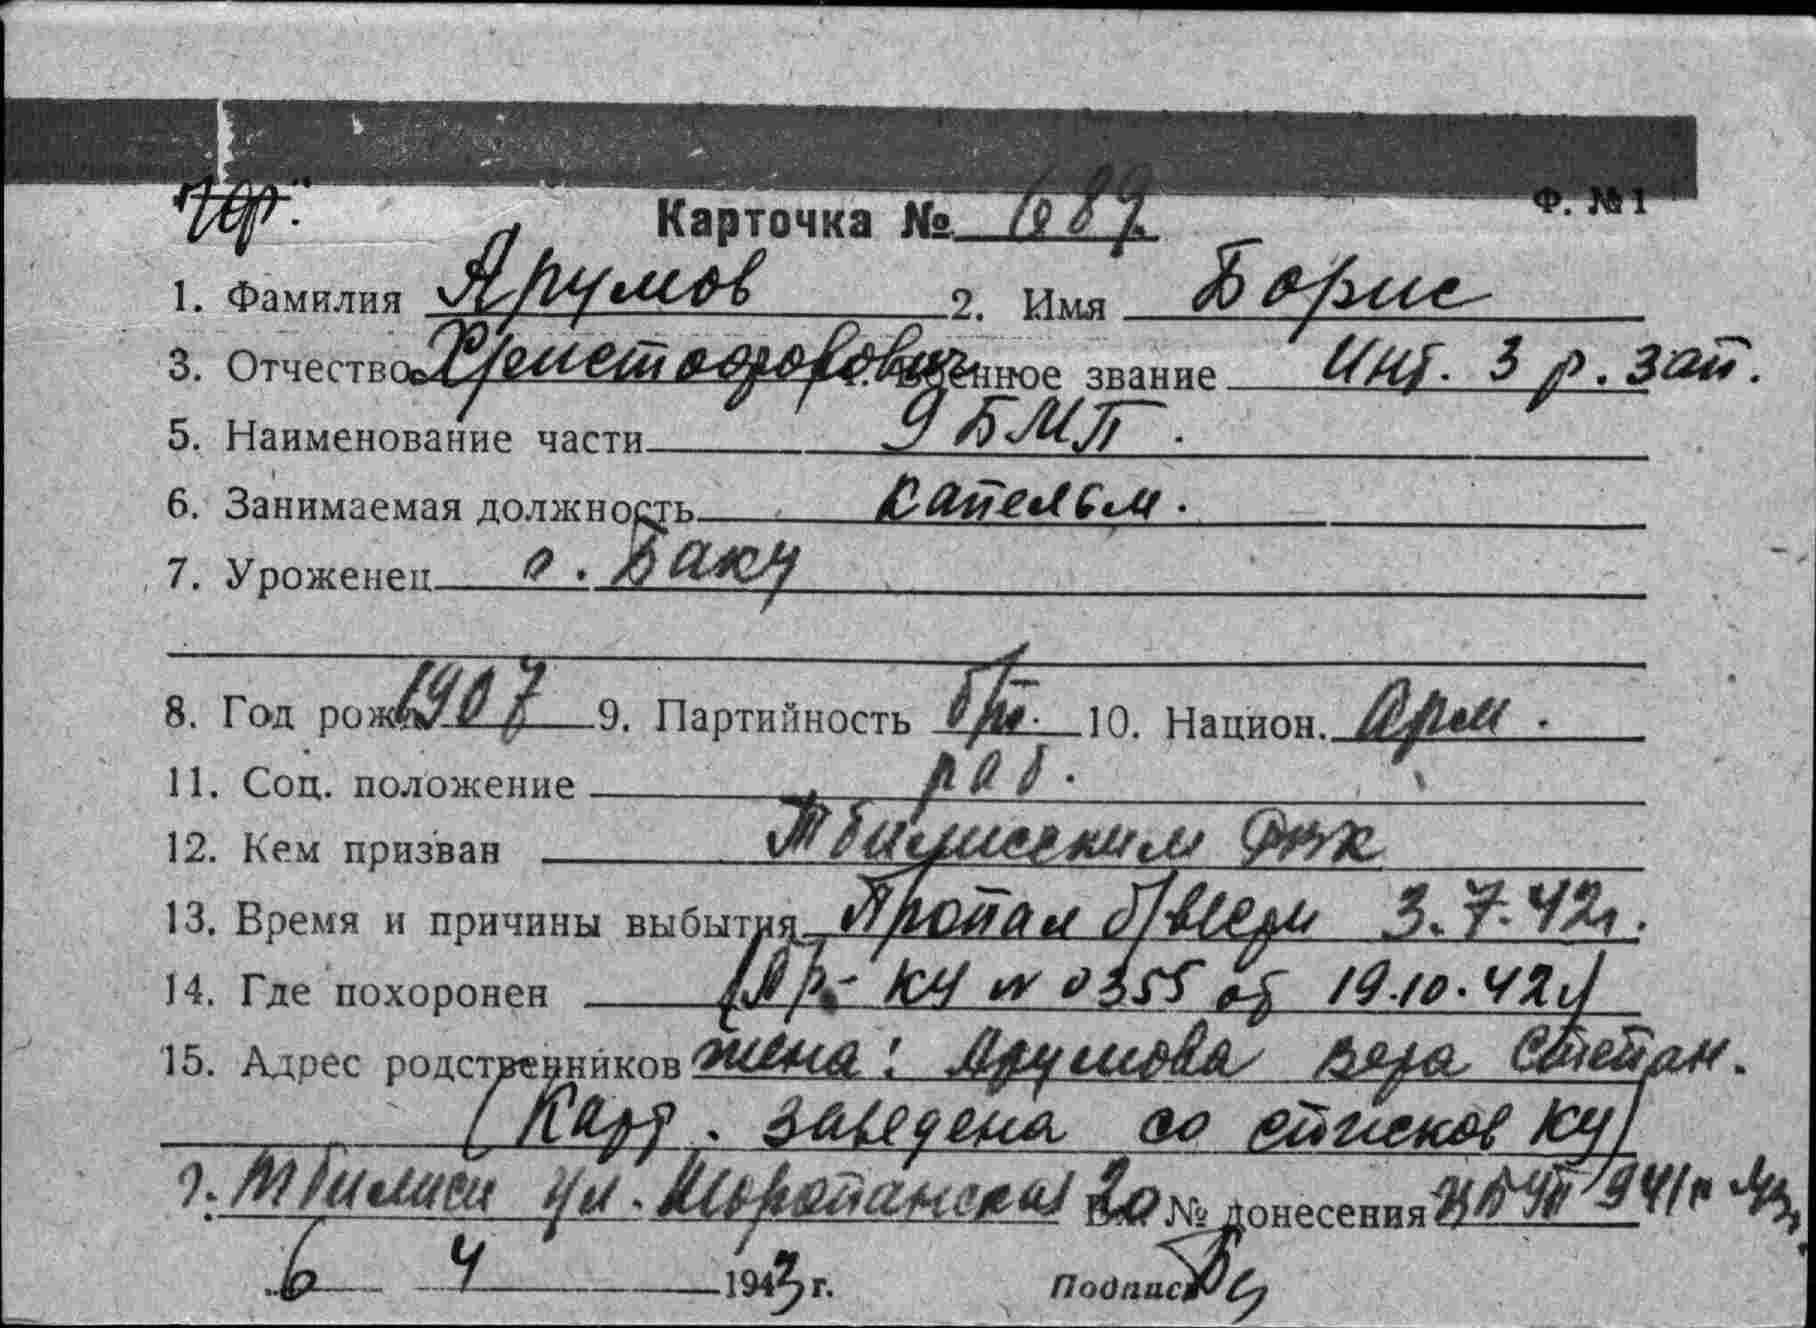 Ф. №1
Чер.
Карточка № 1689
1. Фамилия Арумов 2. Имя Борис
3. Отчество Христофорович Военное звание Инт. 3 р. зап.
5. Наименование части 9 БМП.
6. Занимаемая должность капельм.
7. Уроженец г. Баку
8. Год рож. 1907 9. Партийность б/п. 10. Национ. Арм.
11. Соц. положение раб.
12. Кем призван Тбилисским РВК
13. Время и причины выбытия Пропал б/вести 3.7.42г.
14. Где похоронен (Пр. КУ № 0355 от 19.10.42г)
15. Адрес родственников жена: Арумова Вера Степан.
(Карт. заведена со списков КУ)
г. Тбилиси ул. Шоропанская 20 Вх. № донесения
6 4 1943 г. Подпись